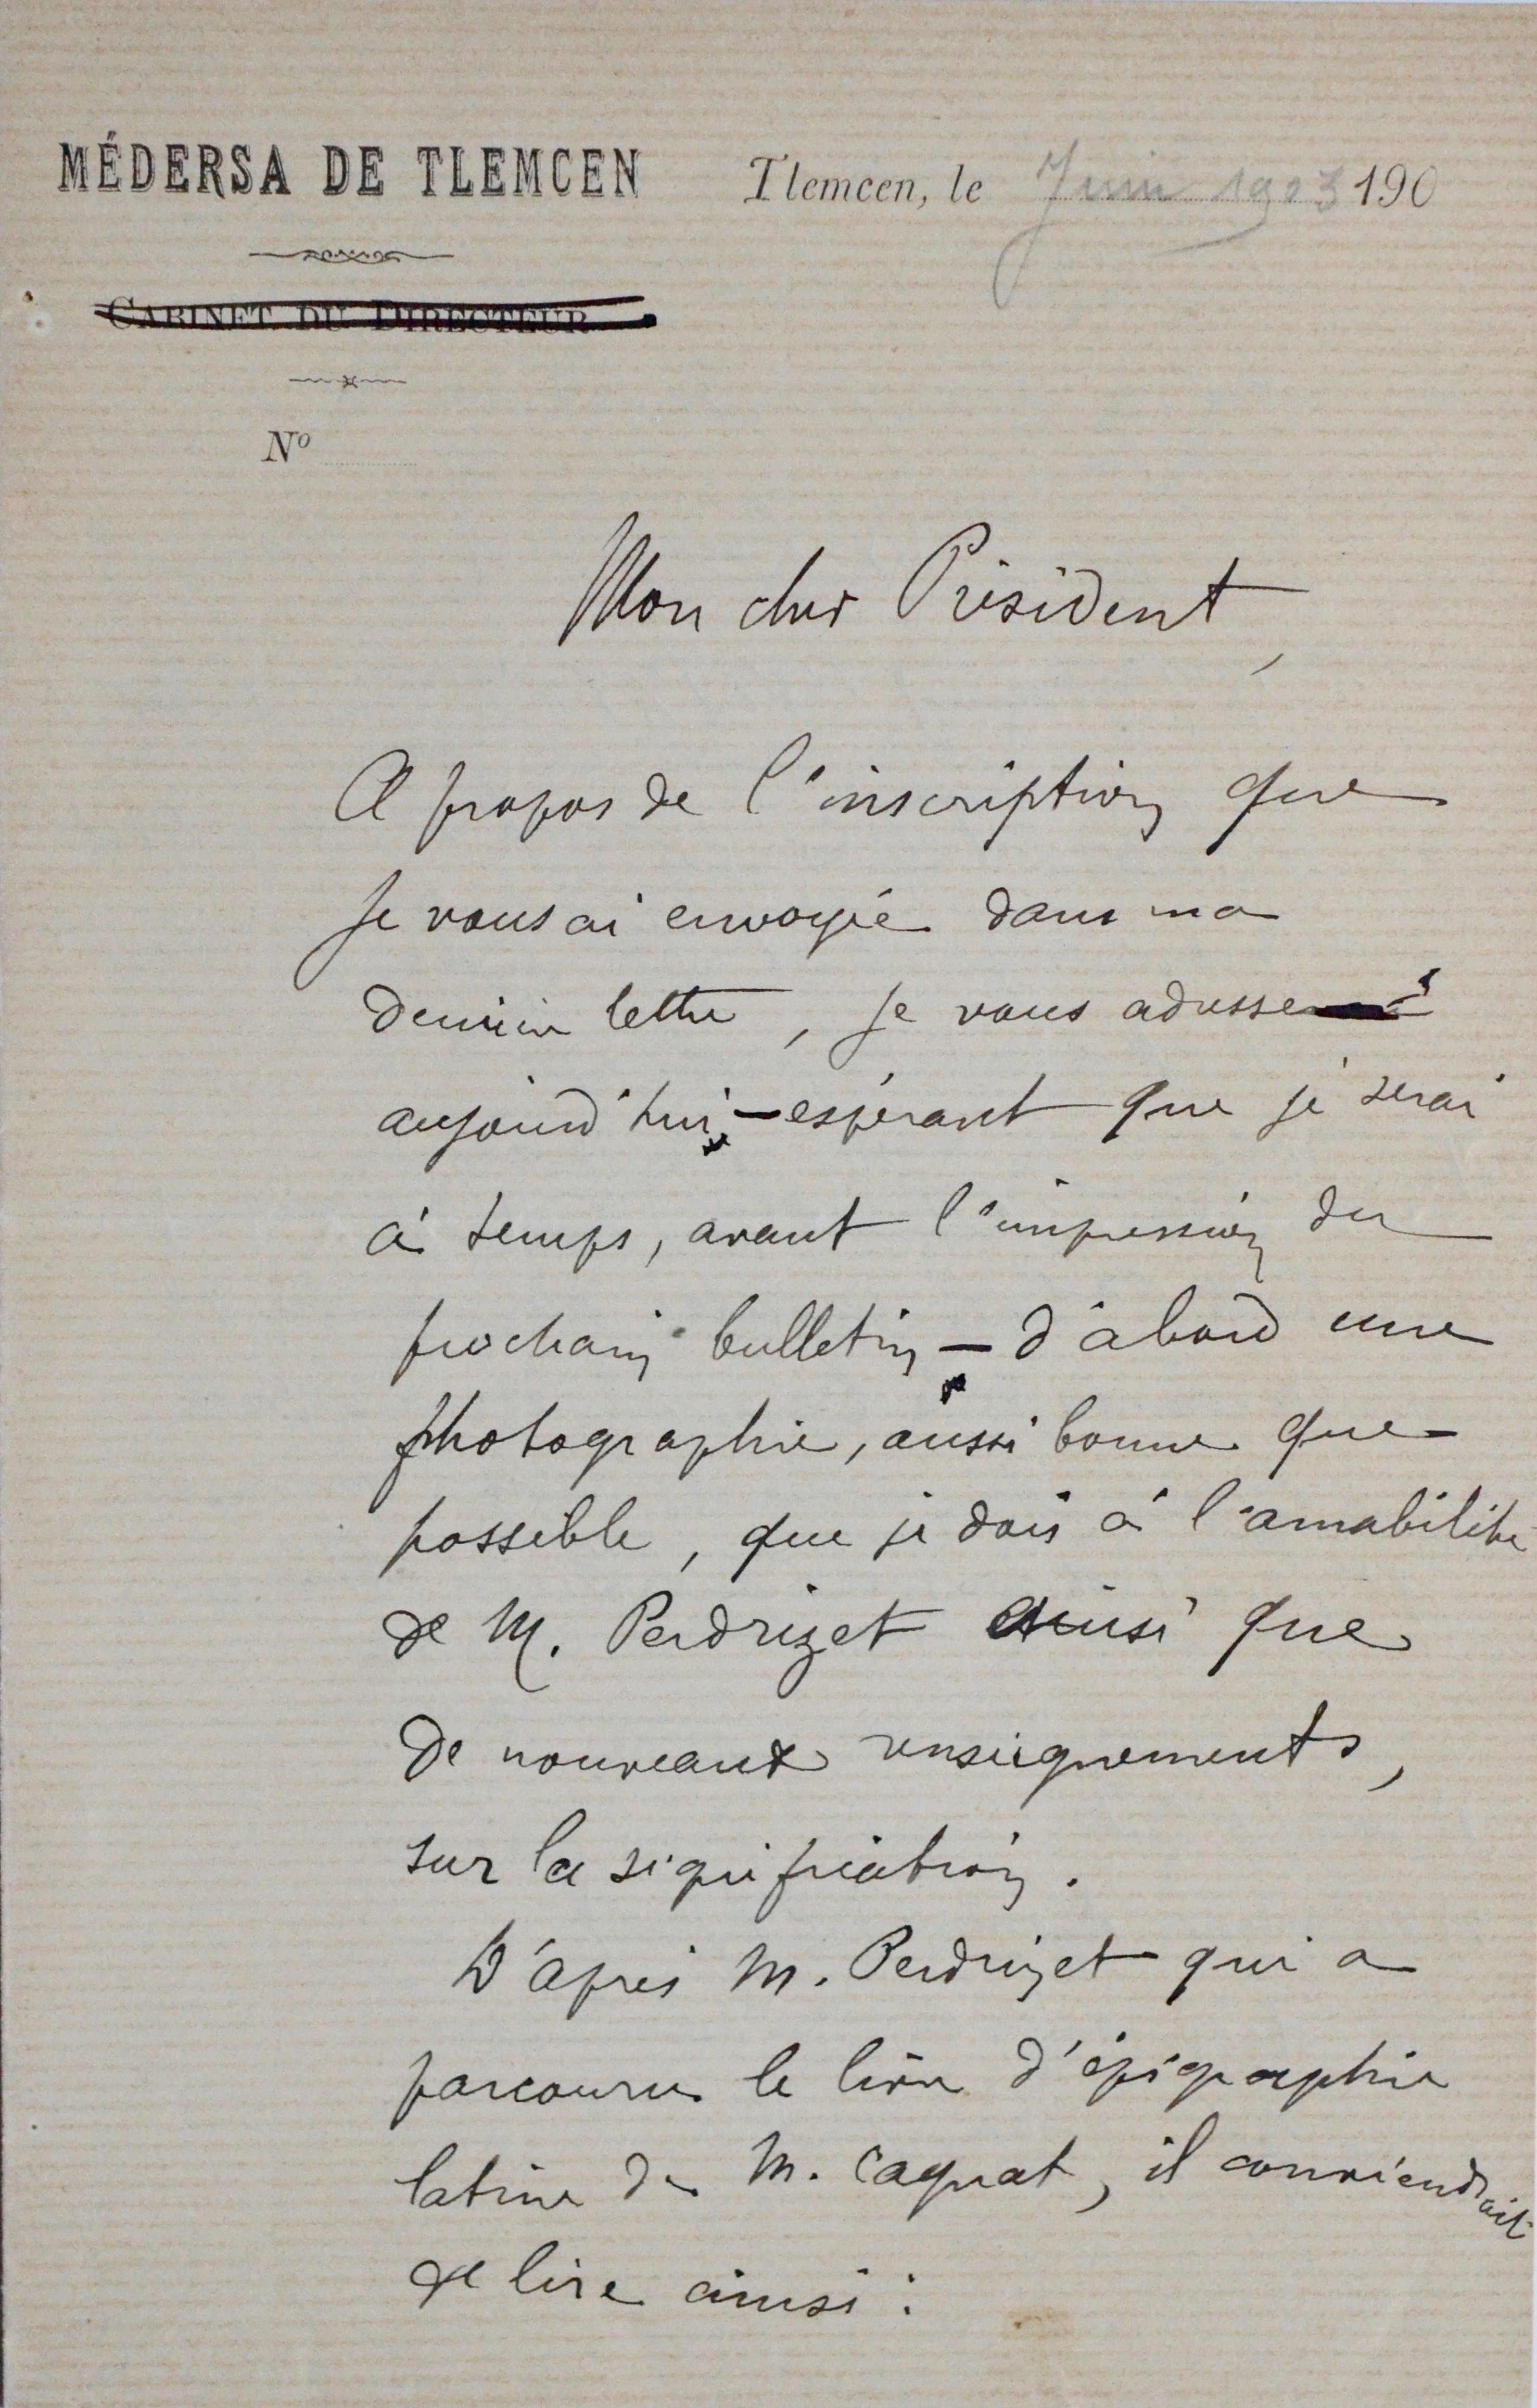 MÉDERSA DE TLEMCEN
Tlemcen, le Juin 1903 190
CABINET DU DIRECTEUR
Nº
Mon cher Président,
A propos de l'inscription que
je vous ai envoyée dans ma
dernière lettre, je vous adresse
aujourd'hui, – espérant que je serai
à temps, avant l'impression du
prochain bulletin – d'abord une
photographie, aussi bonne que
possible, que je dois à l'amabilité
de M. Perdrizet ainsi que
de nouveaux renseignements,
sur la signification.
D'après M. Perdrizet qui a
parcouru le livre d'épigraphie
latine de M. Cagnat, il conviendrait
de lire ainsi :